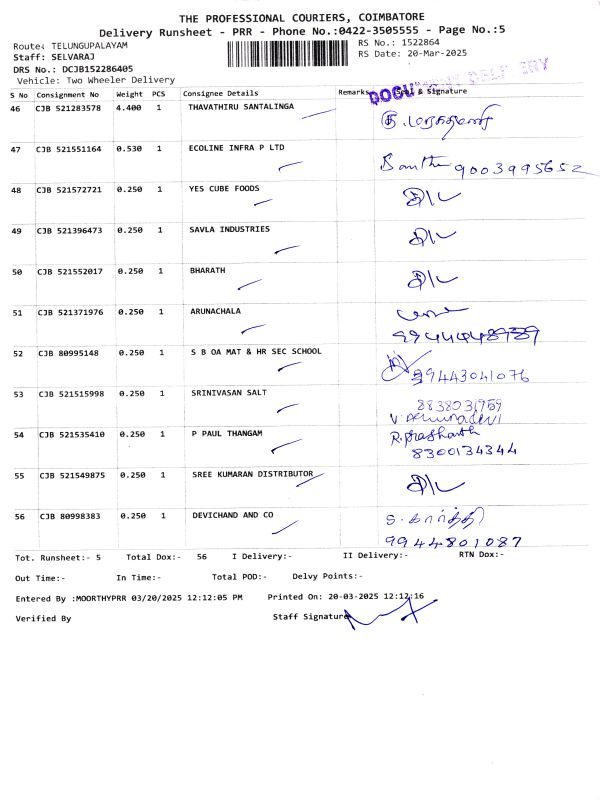 THE PROFESSIONAL COURIERS, COIMBATORE
Delivery Runsheet - PRR - Phone No.:0422-3505555 - Page No.:5
Route: TELUNGUPALAYAM
RS No.: 1522864
Staff: SELVARAJ
RS Date: 20-Mar-2025
DRS No.: DCJB152286405
Vehicle: Two Wheeler Delivery
DOCUMENT DELIVERY
S No Consignment No Weight PCS Consignee Details Remarks Seal & Signature
46 CJB 521283578 4.400 1 THAVATHIRU SANTALINGA
47 CJB 521551164 0.530 1 ECOLINE INFRA P LTD 9003995652
48 CJB 521572721 0.250 1 YES CUBE FOODS
49 CJB 521396473 0.250 1 SAVLA INDUSTRIES
50 CJB 521552017 0.250 1 BHARATH
51 CJB 521371976 0.250 1 ARUNACHALA
52 CJB 80995148 0.250 1 S B OA MAT & HR SEC SCHOOL 99443041076
53 CJB 521515998 0.250 1 SRINIVASAN SALT 8838031959
54 CJB 521535410 0.250 1 P PAUL THANGAM R.prashanth
8300134344
55 CJB 521549875 0.250 1 SREE KUMARAN DISTRIBUTOR
56 CJB 80998383 0.250 1 DEVICHAND AND CO S. கார்த்தி
9944801087
Tot. Runsheet:- 5 Total Dox:- 56 I Delivery:- II Delivery:- RTN Dox:-
Out Time:- In Time:- Total POD:- Delvy Points:-
Entered By :MOORTHYPRR 03/20/2025 12:12:05 PM Printed On: 20-03-2025 12:12:16
Verified By Staff Signature